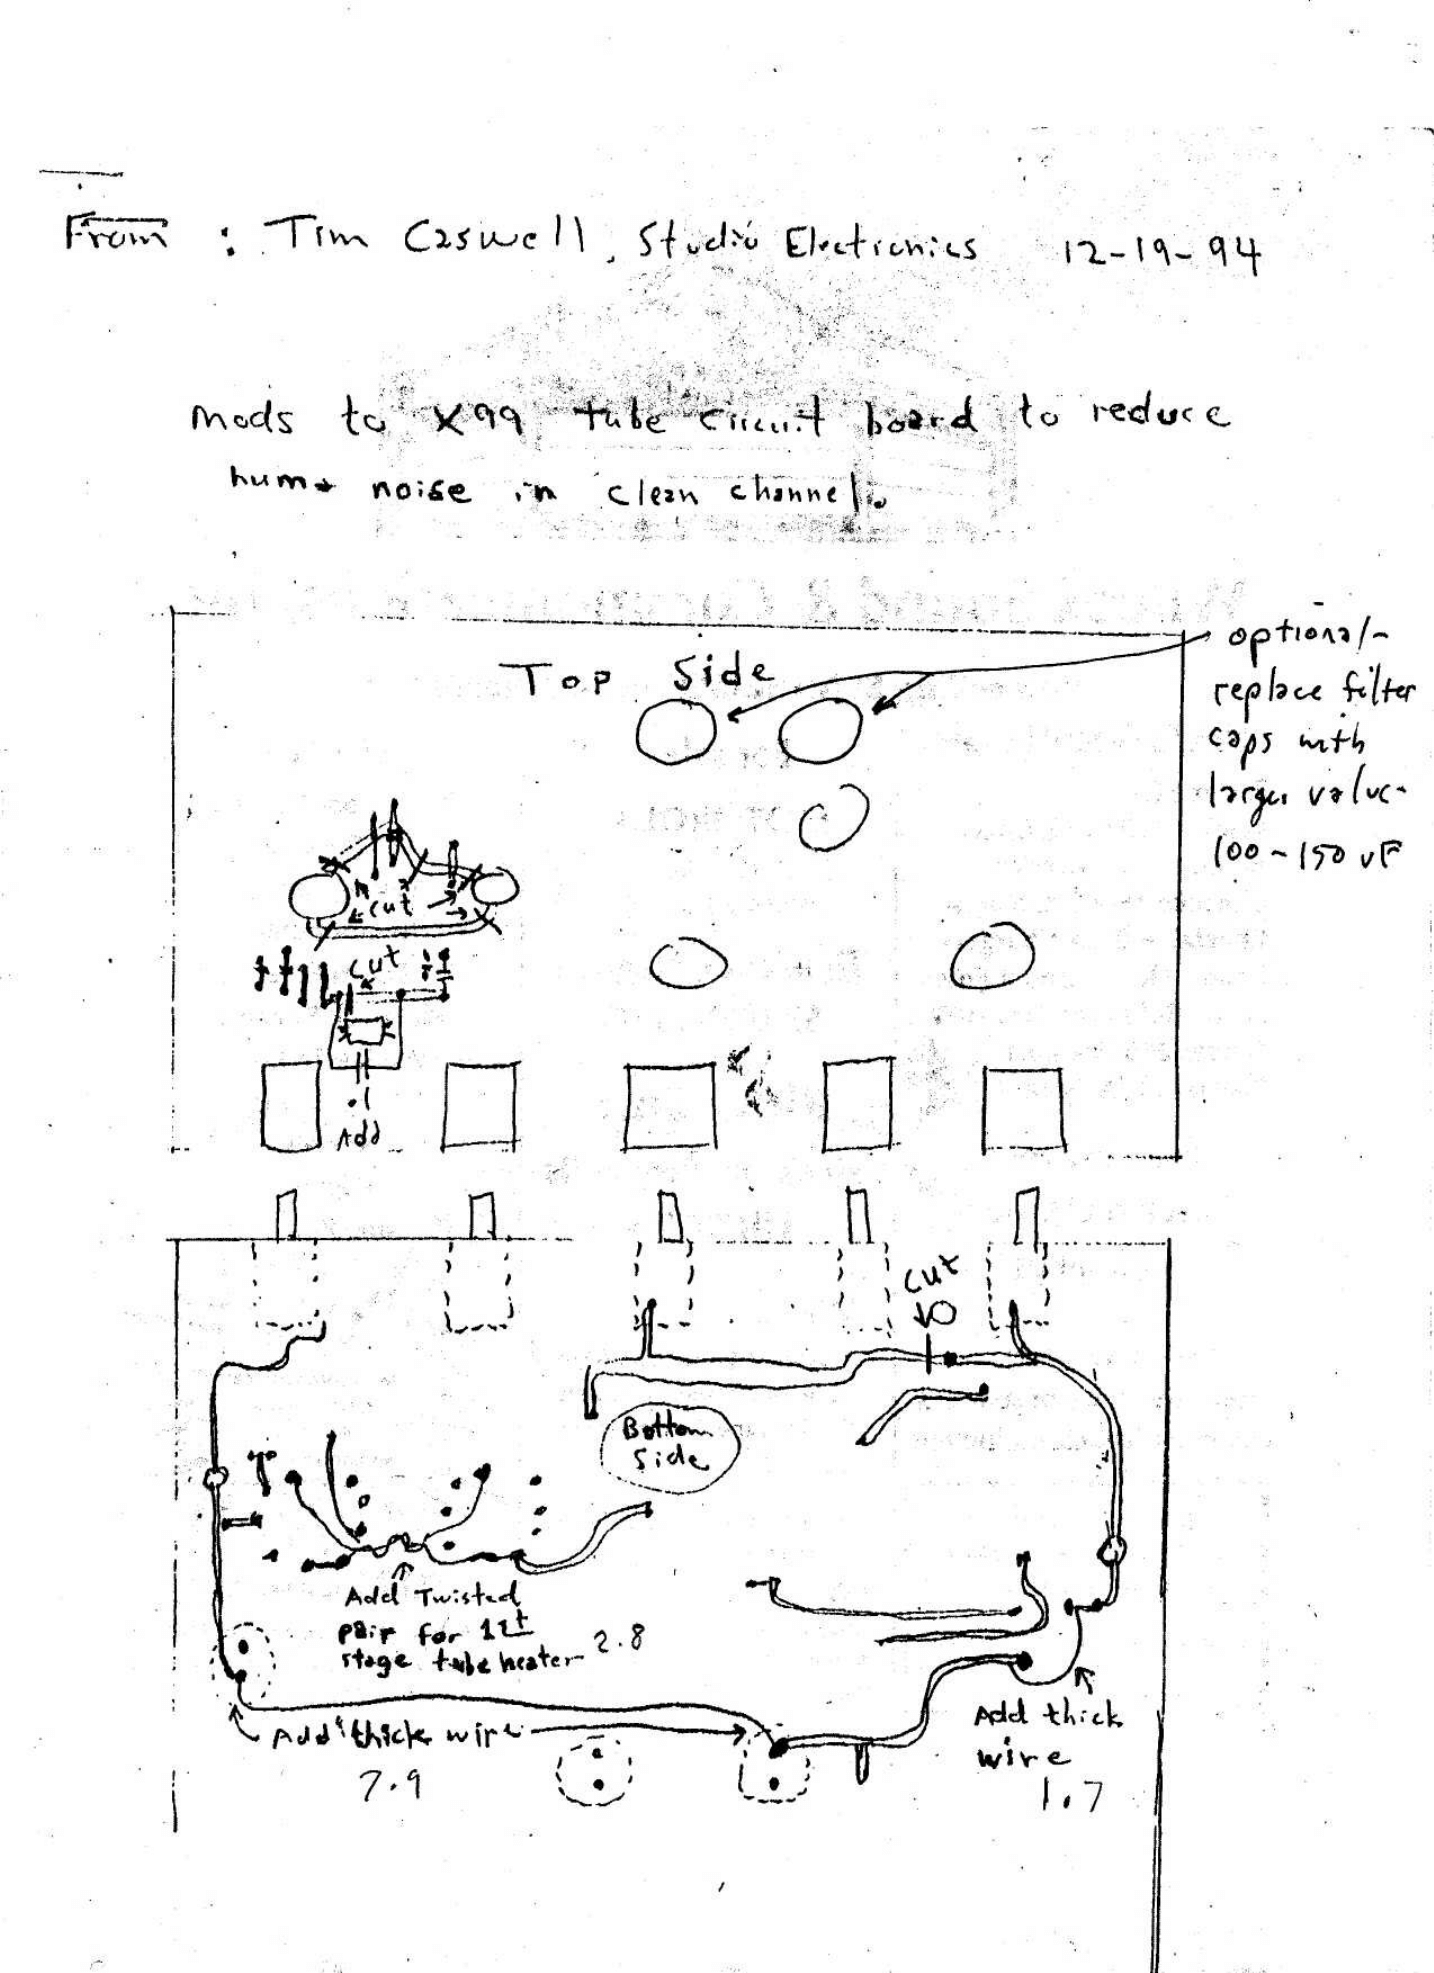 From : Tim Caswell, Studio Electronics 12-19-94
Mods to X99 tube circuit board to reduce
hum + noise in clean channel.
Top Side
optional-
replace filter
caps with
larger value-
100-150 uF
cut
cut
.1
Add
cut
Bottom
Side
Add Twisted
pair for 1st
stage tube heater 2.8
Add thick wire
7.9
Add thick
wire
1.7